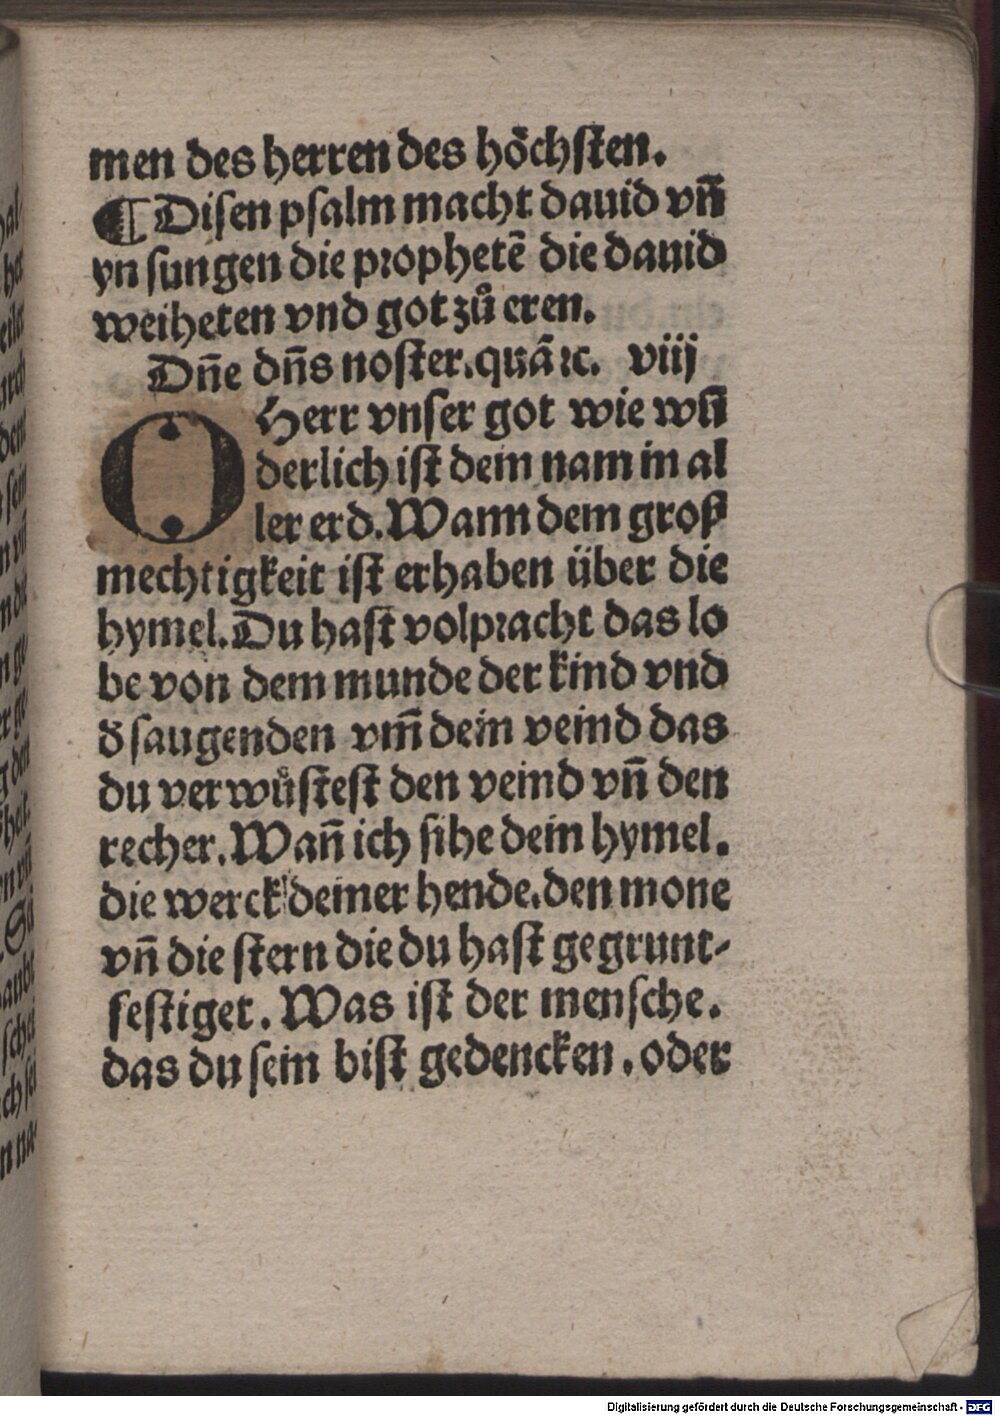 men des herren des höchsten.
¶ Disen psalm macht dauid vñ
yn sungen die prophetē die dauid
weiheten vnd got zů eren.
Dñe dñs noster. quā ꝛc. viij
O Herr vnser got wie wū
derlich ist dein nam in al
ler erd. Wann dem groß
mechtigkeit ist erhaben über die
hymel. Du hast volpracht das lo
be von dem munde der kind vnd
đ saugenden vm̄ dein veind das
du verwůstest den veind vñ den
recher. Wañ ich sihe dein hymel.
die werck deiner hende. den mone
vñ die stern die du hast gegrunt-
festiget. Was ist der mensche.
das du sein bist gedencken. oder
Digitalisierung gefördert durch die Deutsche Forschungsgemeinschaft - DFG